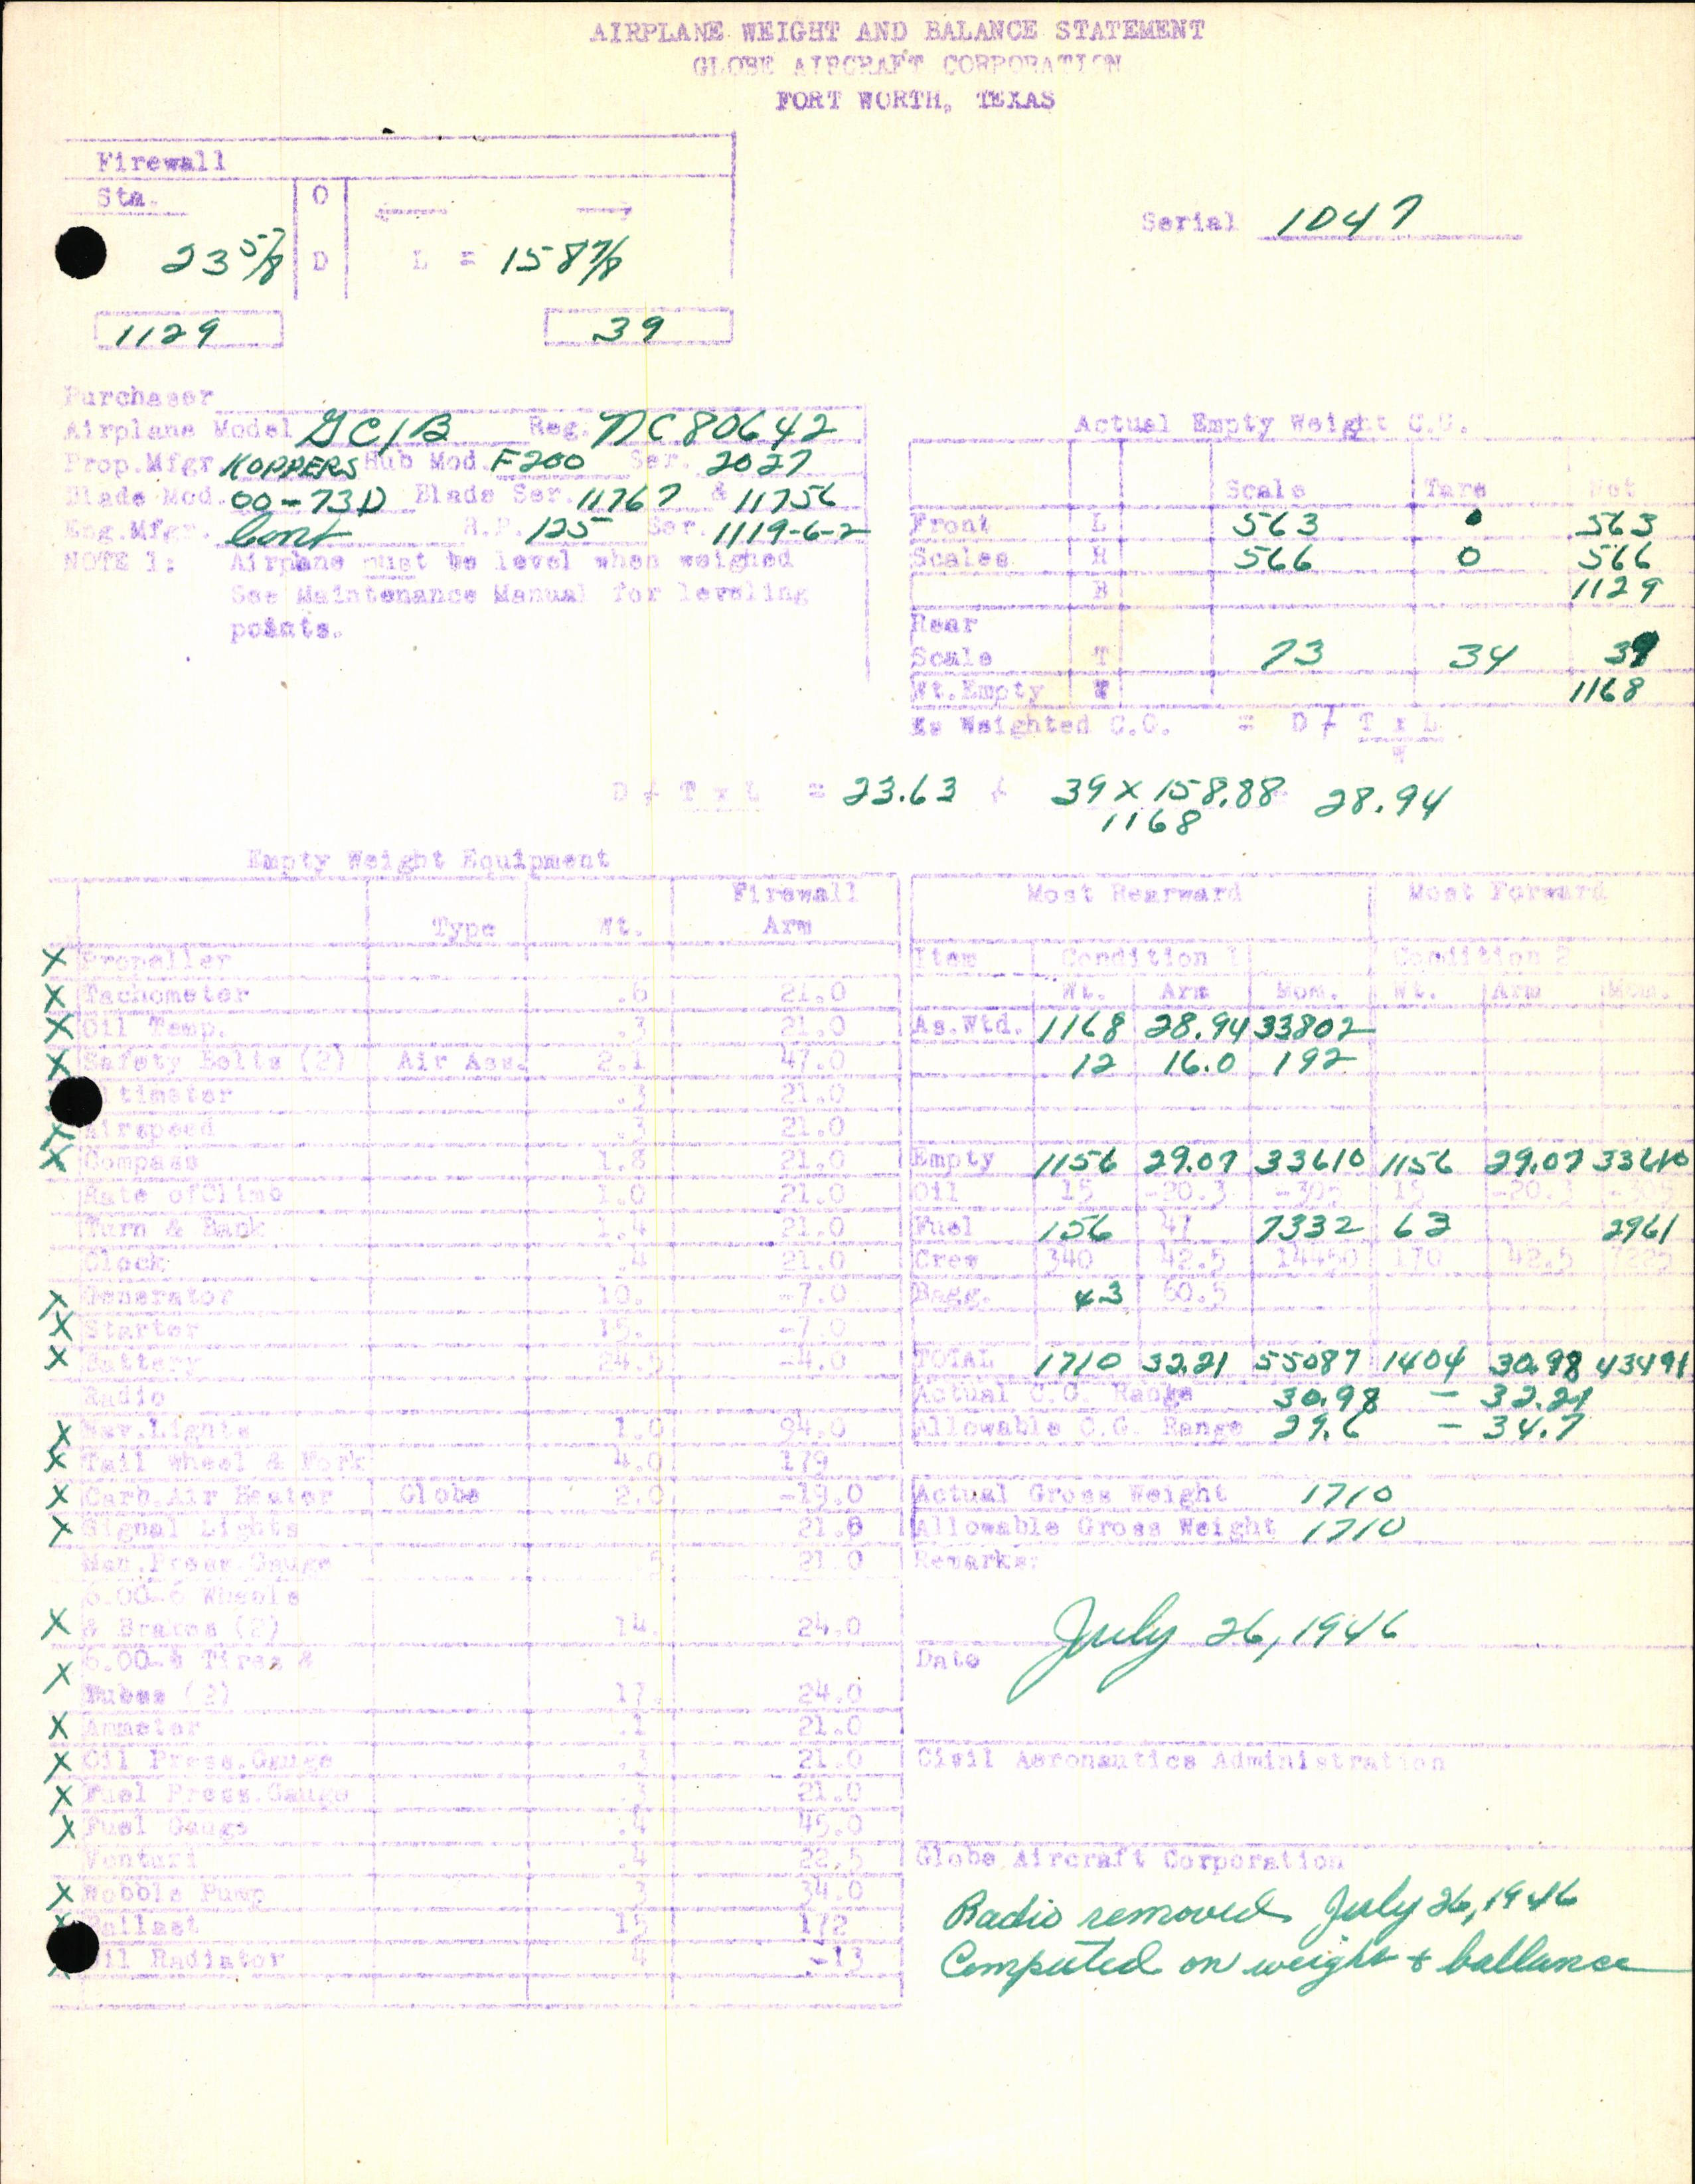 AIRPLANE WEIGHT AND BALANCE STATEMENT
GLOBE AIRCRAFT CORPORATION
FORT WORTH, TEXAS
Firewall
Sta. O
23 5/8 D L = 158 7/8
Serial 1047
1129 39
Purchaser
Airplane Model GC1B Reg. NC80642
Prop.Mfgr. KOPPERS Hub Mod. F200 Ser. 2027
Blade Mod. 00-73D Blade Ser. 11767 & 11756
Eng.Mfgr. Cont H.P. 125 Ser. 1119-6-2
NOTE 1: Airplane must be level when weighed
See Maintenance Manual for leveling
points.
Actual Empty Weight C.G.
Scale Tare Net
Front L 563 563
Scales R 566 0 566
B 1129
Rear
Scale T 73 34 39
Wt.Empty W 1168
As Weighted C.G. = D + T x L
W
D + T x L = 23.63 + 39 x 158.88 28.94
1168
Empty Weight Equipment
Type Wt. Firewall
Arm
X Propeller
X Tachometer .6 21.0
X Oil Temp. .3 21.0
X Safety Belts (2) Air Ass. 2.1 47.0
ltimeter .3 21.0
X Airspeed .3 21.0
X Compass 1.8 21.0
Rate of Climb 1.0 21.0
Turn & Bank 1.4 21.0
Clock .4 21.0
X Generator 10. -7.0
X Starter 15. -7.0
X Battery 24.5 -4.0
Radio
X Nav.Lights 1.0 94.0
X Tail Wheel & Fork 4.0 179
X Carb.Air Heater Globe 2.0 -19.0
X Signal Lights 21.0
Man.Press.Gauge .5 21.0
6.00-6 Wheels
X & Brakes (2) 14. 24.0
6.00-6 Tires &
X Tubes (2) 17. 24.0
X Ammeter .1 21.0
X Oil Press.Gauge .3 21.0
X Fuel Press.Gauge .3 21.0
X Fuel Gauge .4 45.0
Venturi .4 22.5
X Wobble Pump 3 34.0
X allast 15 172
il Radiator 4 -13
Most Rearward Most Forward
Item Condition 1 Condition 2
Wt. Arm Mom. Wt. Arm Mom.
As.Wtd. 1168 28.94 33802
12 16.0 192
Empty 1156 29.07 33610 1156 29.07 33610
Oil 15 -20.3 -305 15 -20.3 -305
Fuel 156 47 7332 63 2961
Crew 340 42.5 14450 170 42.5 7225
Bagg. 43 60.5
TOTAL 1710 32.21 55087 1404 30.98 43491
Actual C.G. Range 30.98 - 32.21
Allowable C.G. Range 29.6 - 34.7
Actual Gross Weight 1710
Allowable Gross Weight 1710
Remarks:
July 26, 1946
Date
Civil Aeronautics Administration
Globe Aircraft Corporation
Radio removed July 26, 1946
Computed on weight & ballance